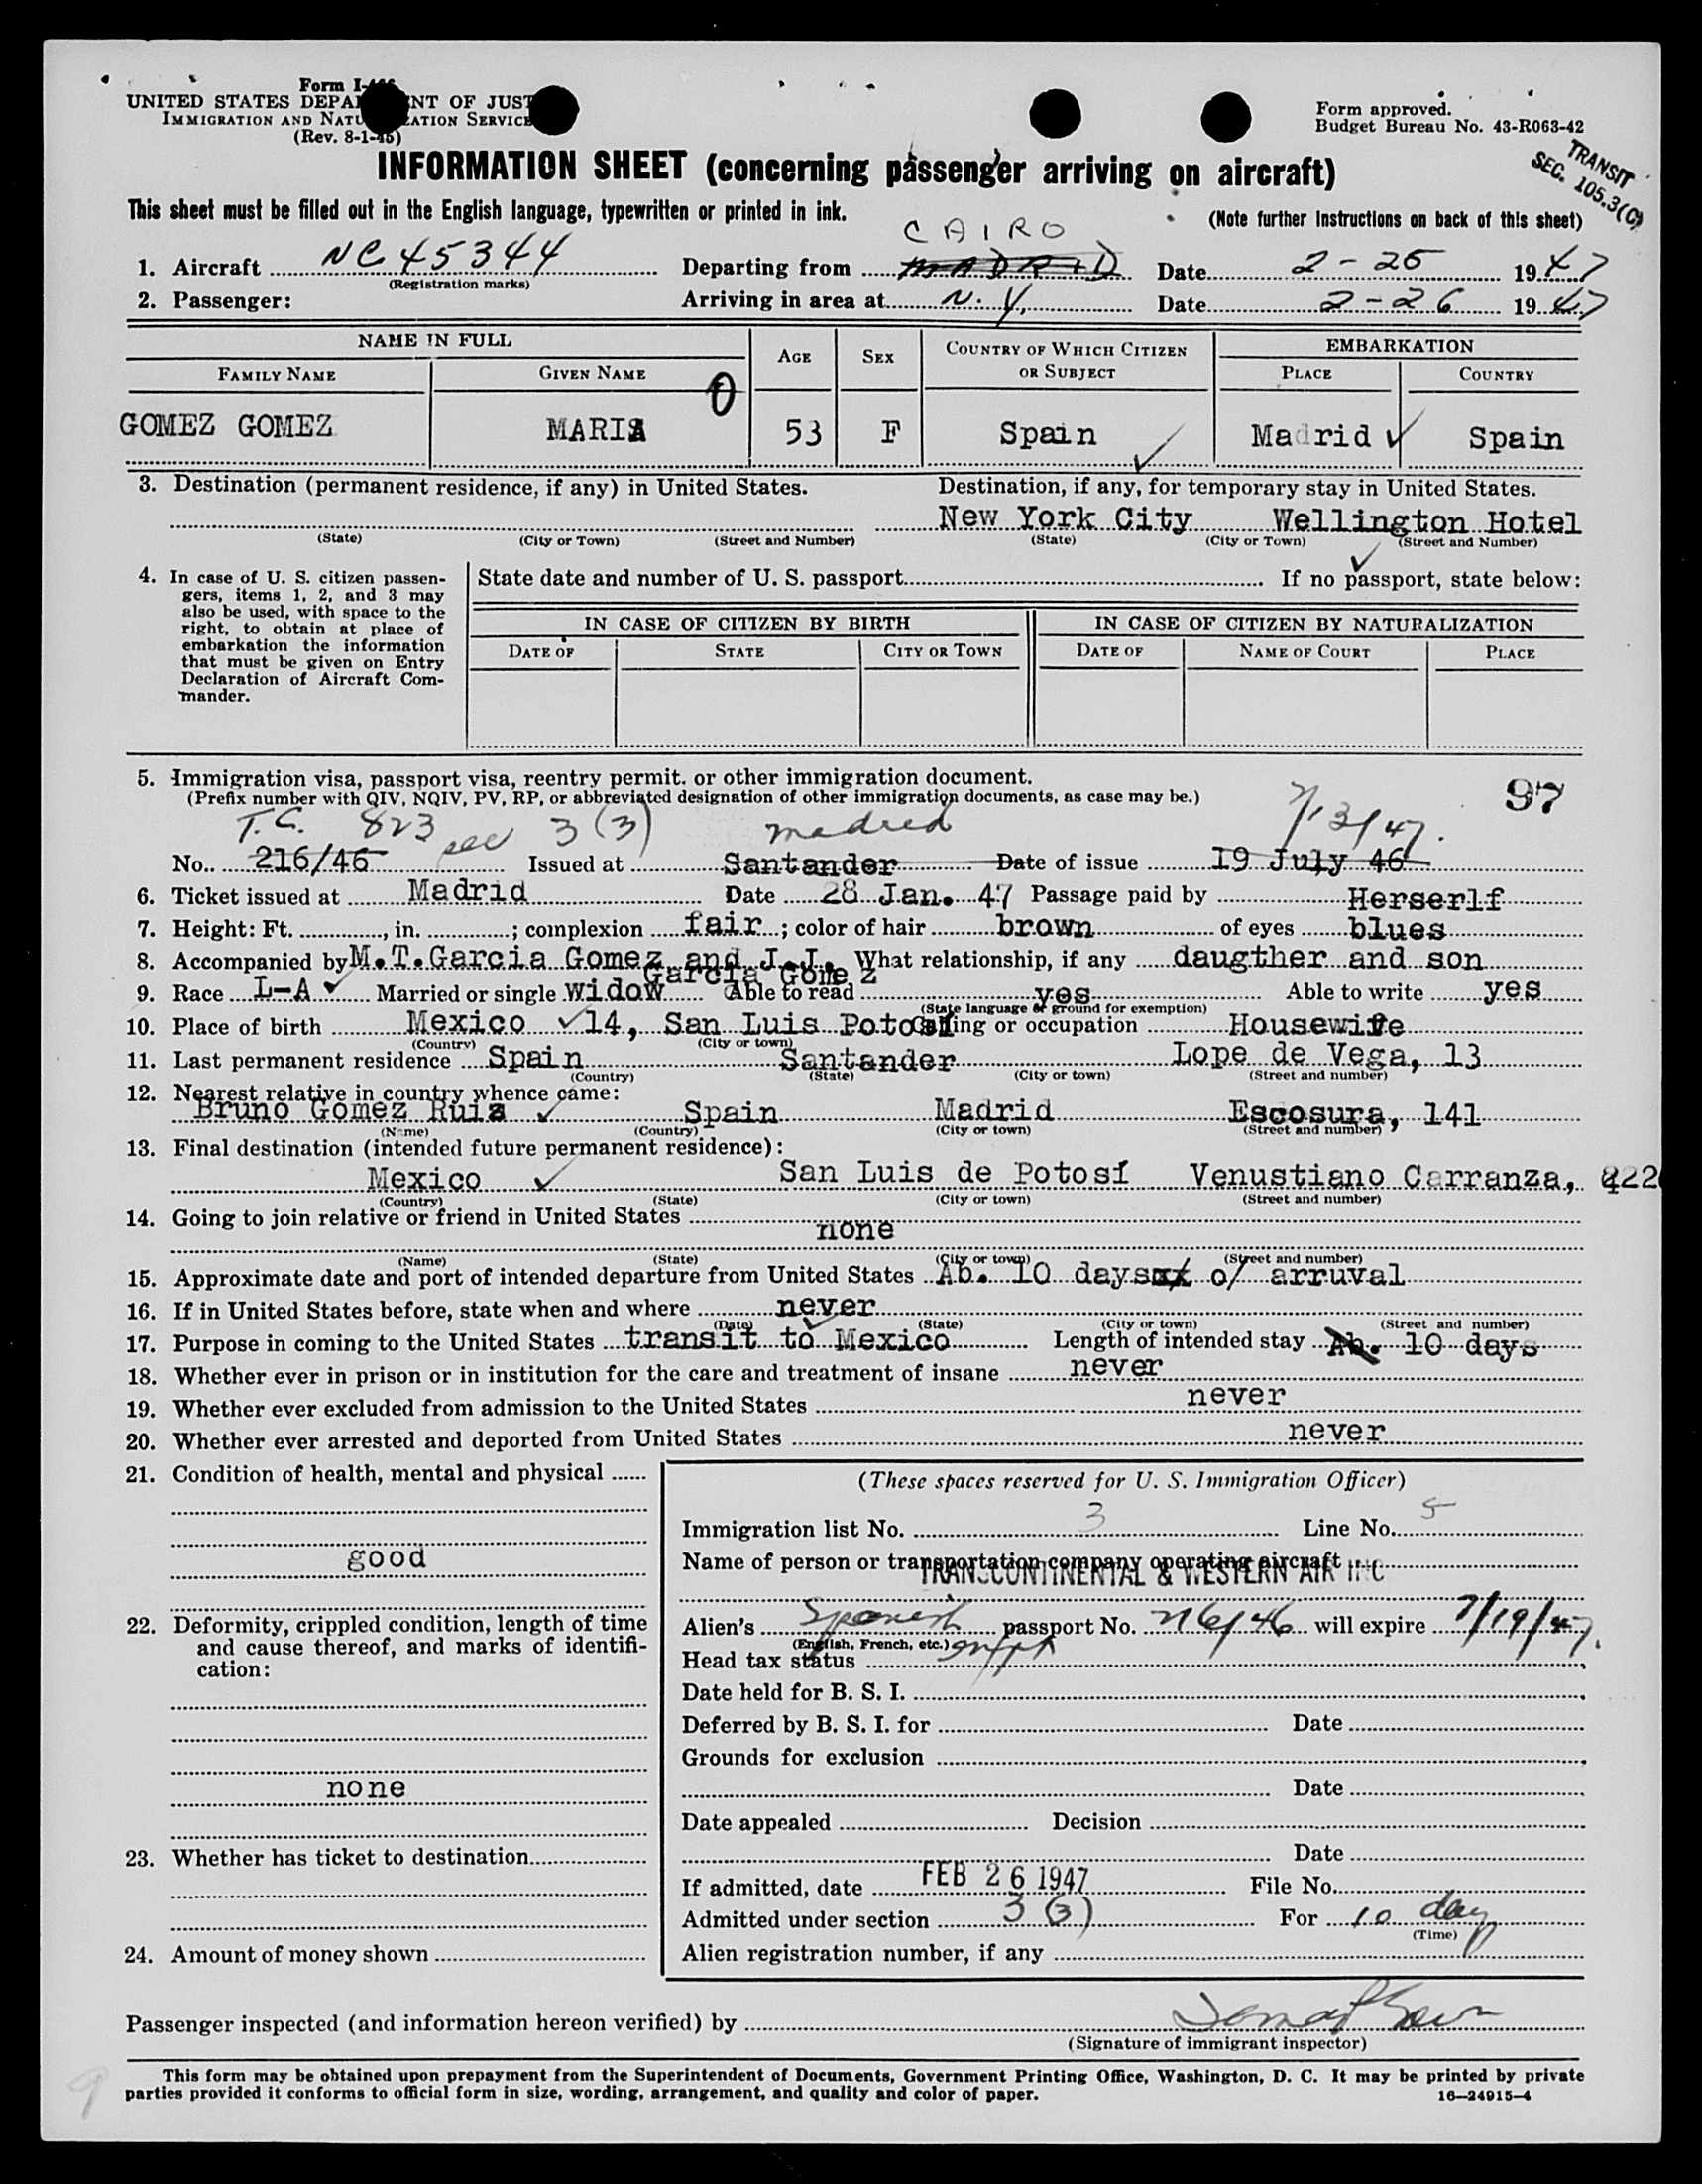 Form I-466
UNITED STATES DEPARTMENT OF JUSTICE
IMMIGRATION AND NATURALIZATION SERVICE
(Rev. 8-1-45)
Form approved.
Budget Bureau No. 43-R063-42
TRANSIT
SEC. 105.3(C)
INFORMATION SHEET (concerning passenger arriving on aircraft)
This sheet must be filled out in the English language, typewritten or printed in ink.
(Note further Instructions on back of this sheet)
CAIRO
1. Aircraft NC 45344 Departing from MADRID Date 2-25 1947
(Registration marks)
2. Passenger: Arriving in area at N.Y., Date 2-26 1947
NAME IN FULL AGE SEX COUNTRY OF WHICH CITIZEN OR SUBJECT EMBARKATION
FAMILY NAME GIVEN NAME PLACE COUNTRY
GOMEZ GOMEZ MARIA 53 F Spain Madrid Spain
3. Destination (permanent residence, if any) in United States. Destination, if any, for temporary stay in United States.
New York City Wellington Hotel
(State) (City or Town) (Street and Number) (State) (City or Town) (Street and Number)
4. In case of U. S. citizen passengers, items 1, 2, and 3 may also be used, with space to the right, to obtain at place of embarkation the information that must be given on Entry Declaration of Aircraft Commander.
State date and number of U. S. passport If no passport, state below:
IN CASE OF CITIZEN BY BIRTH IN CASE OF CITIZEN BY NATURALIZATION
DATE OF STATE CITY OR TOWN DATE OF NAME OF COURT PLACE
5. Immigration visa, passport visa, reentry permit, or other immigration document.
(Prefix number with QIV, NQIV, PV, RP, or abbreviated designation of other immigration documents, as case may be.)
97
T.C. 823 sec 3(3) madrid
No. 216/46 Issued at Santander Date of issue 19 July 46
6. Ticket issued at Madrid Date 28 Jan. 47 Passage paid by Herserlf
7. Height: Ft. , in. ; complexion fair ; color of hair brown of eyes blues
8. Accompanied by M.T.Garcia Gomez and J.J. What relationship, if any daugther and son
Garcia Gomez
9. Race L-A Married or single widow Able to read yes Able to write yes
(State language or ground for exemption)
10. Place of birth Mexico 14, San Luis Potosí Calling or occupation Housewife
(Country) (City or town)
11. Last permanent residence Spain Santander Lope de Vega, 13
(Country) (State) (City or town) (Street and number)
12. Nearest relative in country whence came:
Bruno Gomez Ruiz Spain Madrid Escosura, 141
(Name) (Country) (City or town) (Street and number)
13. Final destination (intended future permanent residence):
Mexico San Luis de Potosí Venustiano Carranza,
(Country) (State) (City or town) (Street and number)
14. Going to join relative or friend in United States
none
(Name) (State) (City or town) (Street and number)
15. Approximate date and port of intended departure from United States Ab. 10 days o/ arruval
16. If in United States before, state when and where never
(Date) (State) (City or town) (Street and number)
17. Purpose in coming to the United States transit to Mexico Length of intended stay Ab. 10 days
18. Whether ever in prison or in institution for the care and treatment of insane never
19. Whether ever excluded from admission to the United States never
20. Whether ever arrested and deported from United States never
21. Condition of health, mental and physical
good
22. Deformity, crippled condition, length of time and cause thereof, and marks of identification:
none
23. Whether has ticket to destination
24. Amount of money shown
(These spaces reserved for U. S. Immigration Officer)
Immigration list No. 3 Line No. 5
Name of person or transportation company operating aircraft
TRANSCONTINENTAL & WESTERN AIR INC
Alien's Spanish passport No. 216/46 will expire 7/19/47.
(English, French, etc.)
Head tax status
Date held for B. S. I.
Deferred by B. S. I. for Date
Grounds for exclusion
Date
Date appealed Decision
Date
If admitted, date FEB 26 1947 File No.
Admitted under section 3 (3) For 10 days
(Time)
Alien registration number, if any
Passenger inspected (and information hereon verified) by
(Signature of immigrant inspector)
This form may be obtained upon prepayment from the Superintendent of Documents, Government Printing Office, Washington, D. C. It may be printed by private
parties provided it conforms to official form in size, wording, arrangement, and quality and color of paper.
16—24915-4
9